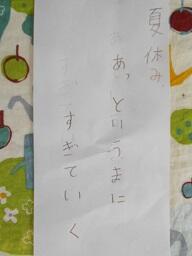 夏休み
あっというまに
すぎていく